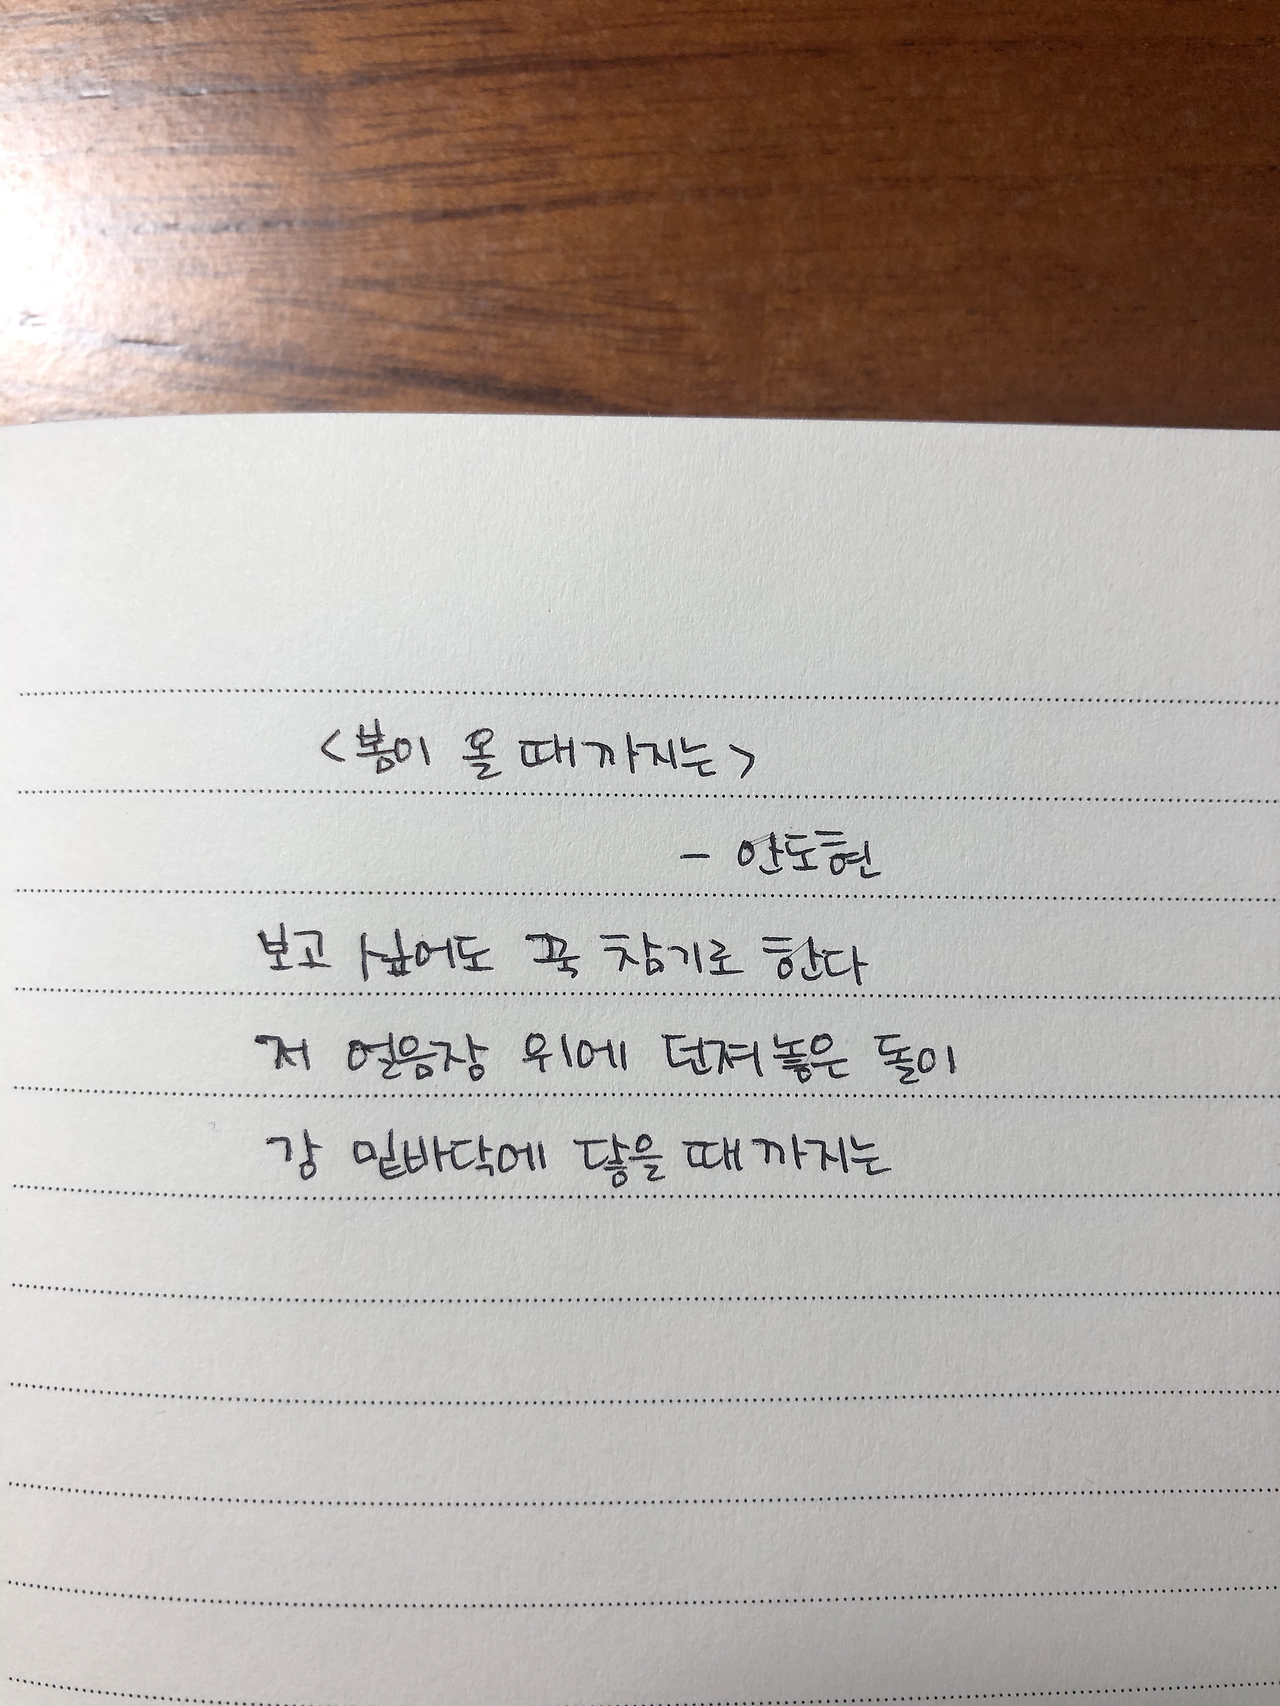 <봄이 올 때까지는>
- 안도현
보고 싶어도 꾹 참기로 한다
저 얼음장 위에 던져놓은 돌이
강 밑바닥에 닿을 때까지는